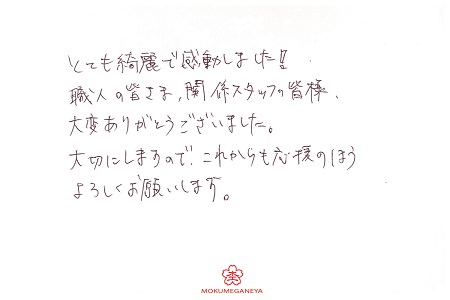 とても綺麗で感動しました!!
職人の皆さま、関係スタッフの皆様、
大変ありがとうございました。
大切にしますので、これからも応援のほう
よろしくお願いします。
MOKUMEGANEYA